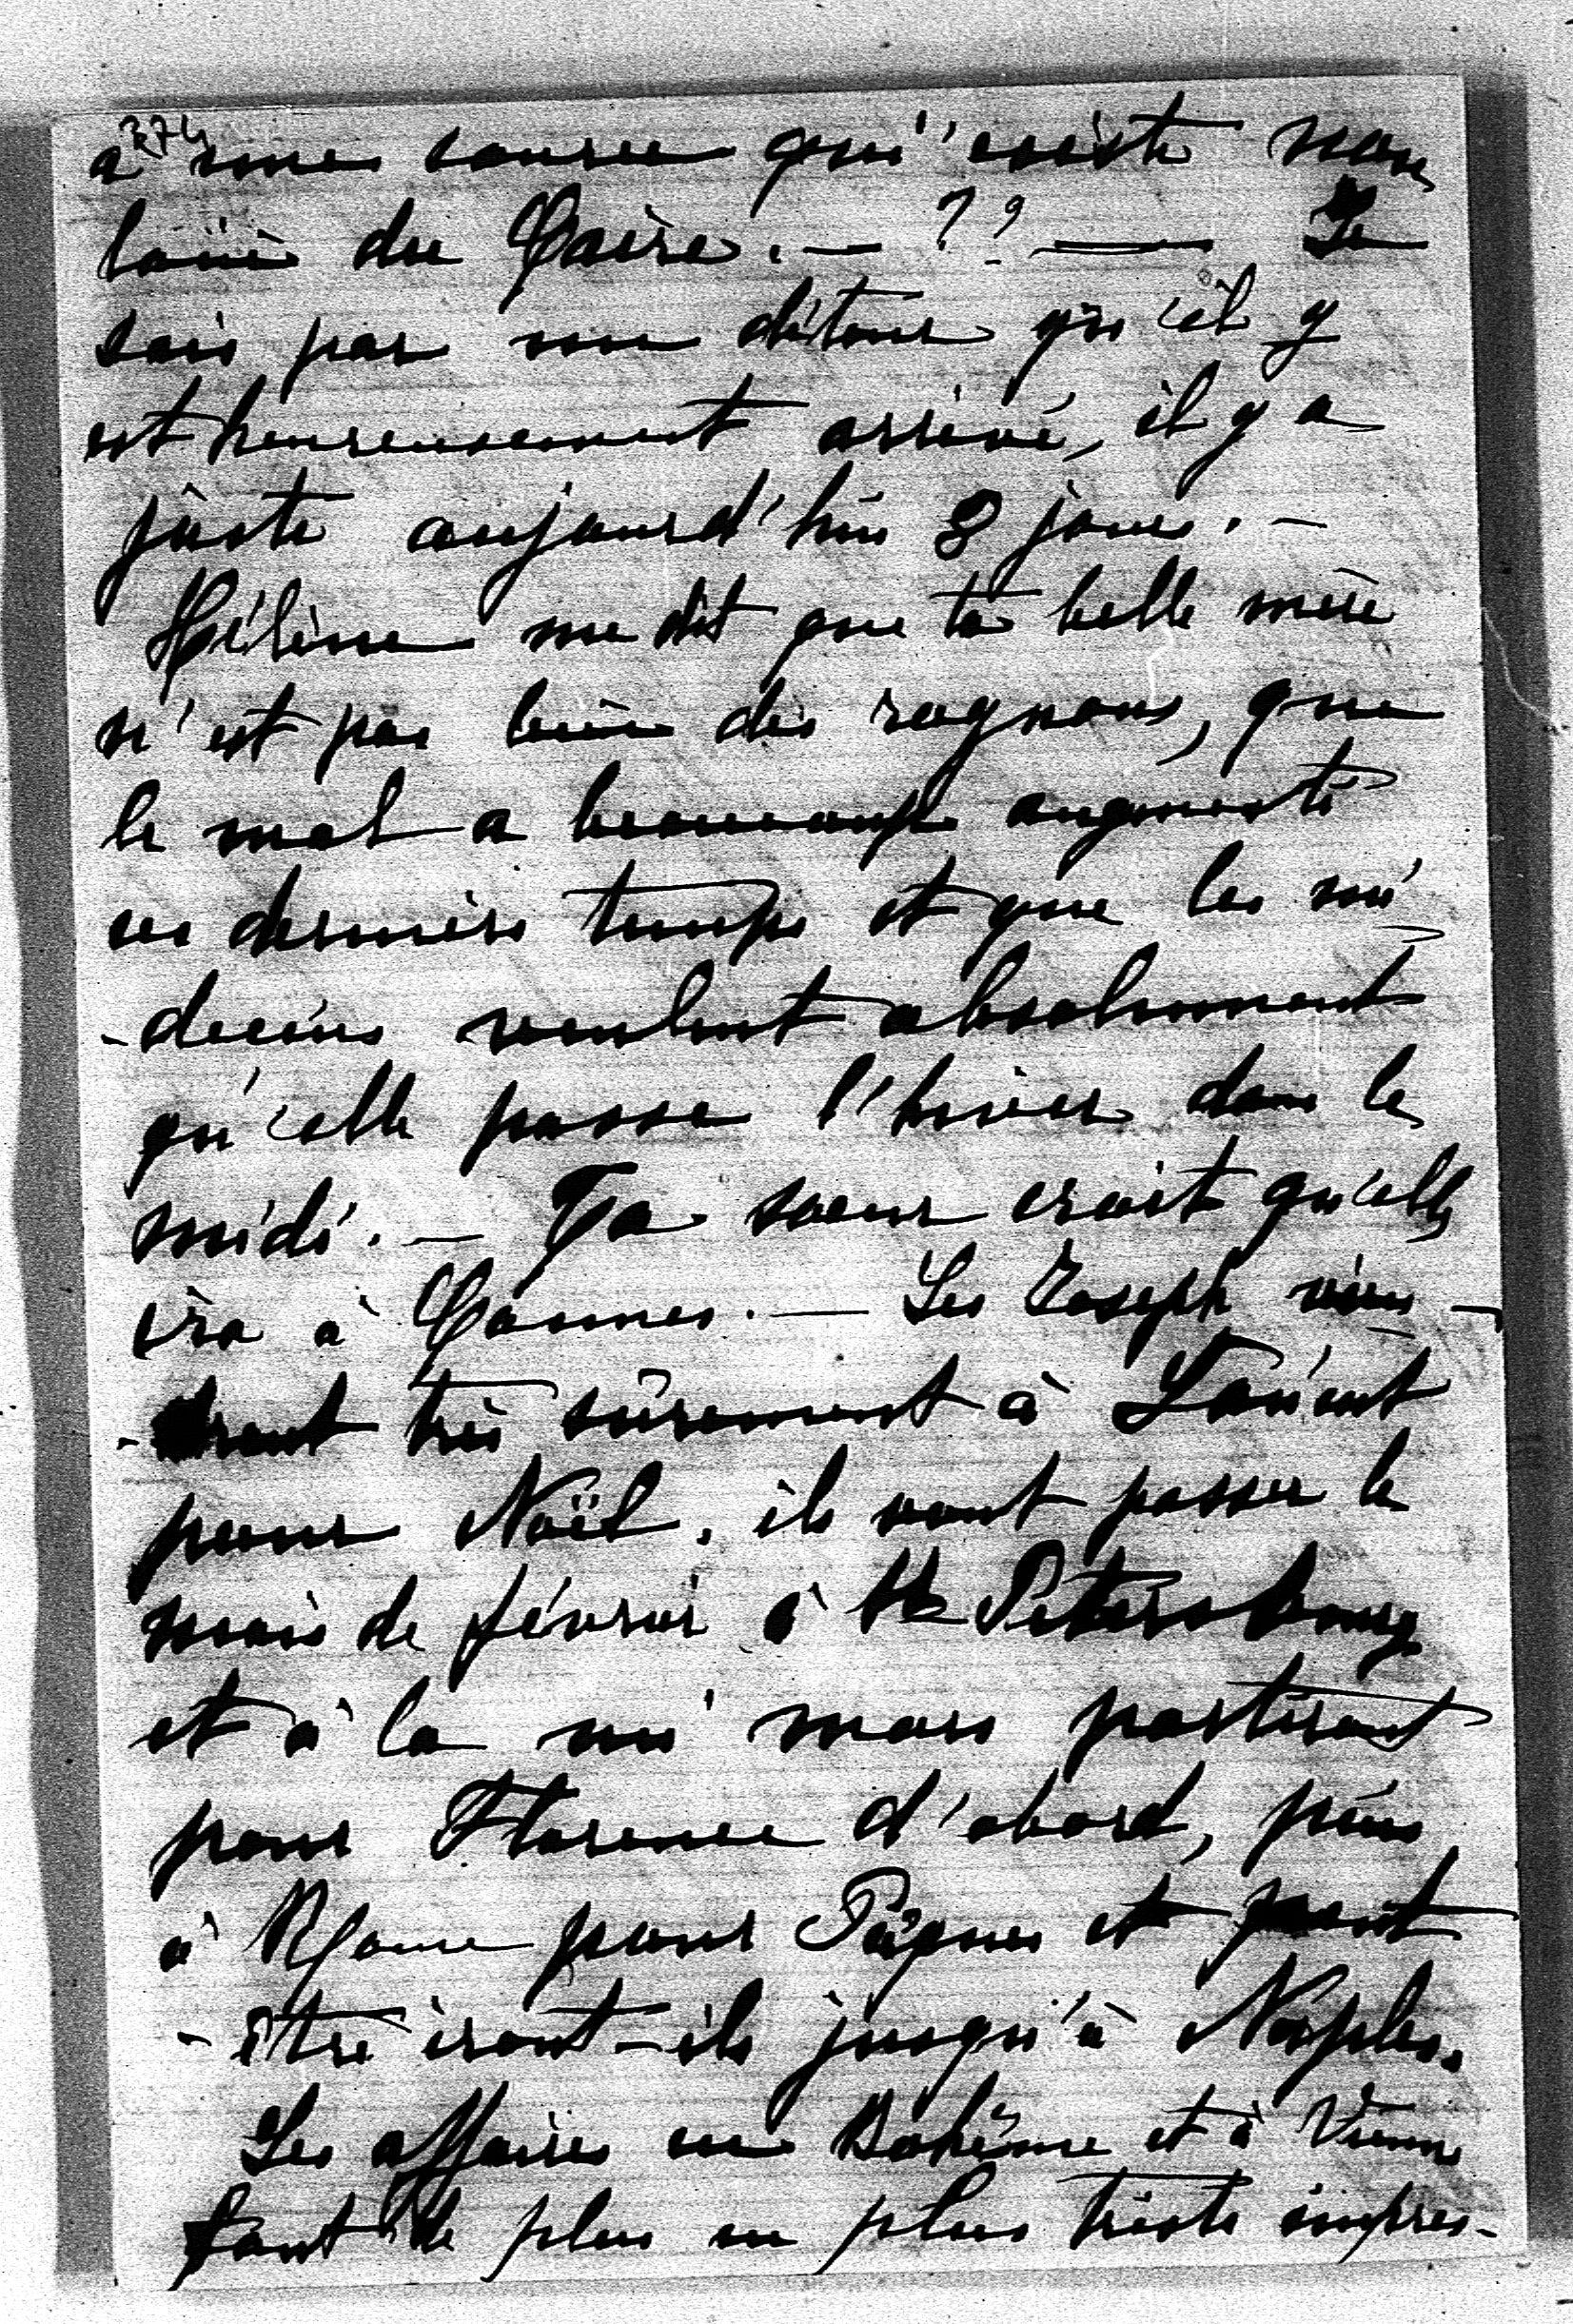 374
a une source qui existe non
loin du Caire. — ?? — Je
sais par un détour qu'il y
est heureusement arrivé, il y a
juste aujourd'hui 8 jours. —
Hélène me dit que ta belle mère
n'est pas bien des rognons, que
le mal a beaucoup augmenté
ces derniers temps et que les mé
-decins veulent absolument
qu'elle passe l'hiver dans le
midi. — Ta soeur croit qu'elle
ira à Cannes. — Les Joseph vien-
-dront très sûrement à
pour Noël. ils vont passer le
mois de février à St Petersbourg
et à la mi mars partiront
pour Florence d'abord, puis
à Rome pour Pâques et peut
-être iront-ils jusqu'à Naples.
Les affaires en Bohême et à Vienne
font de plus en plus triste impres-